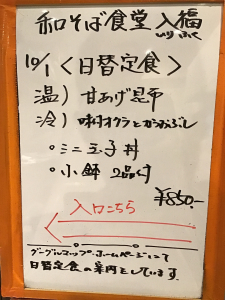 和そば食堂 入福
10/1 〈日替定食〉
温) 甘あげ昆布
冷) 味付オクラとかつおぶし
・ミニ玉子丼
・小鉢 2品付
¥850.-
入口こちら
グーグルマップ・ホームページにて
日替定食の案内をしています。